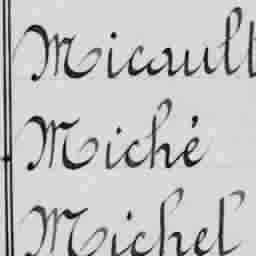 Micault
Miché
Michel